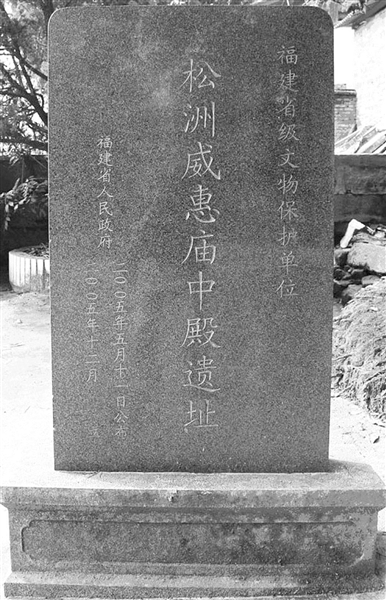 福建省级文物保护单位
松洲威惠庙中殿遗址
福建省人民政府
二〇〇五年五月十一日公布
二〇〇五年十二月 立